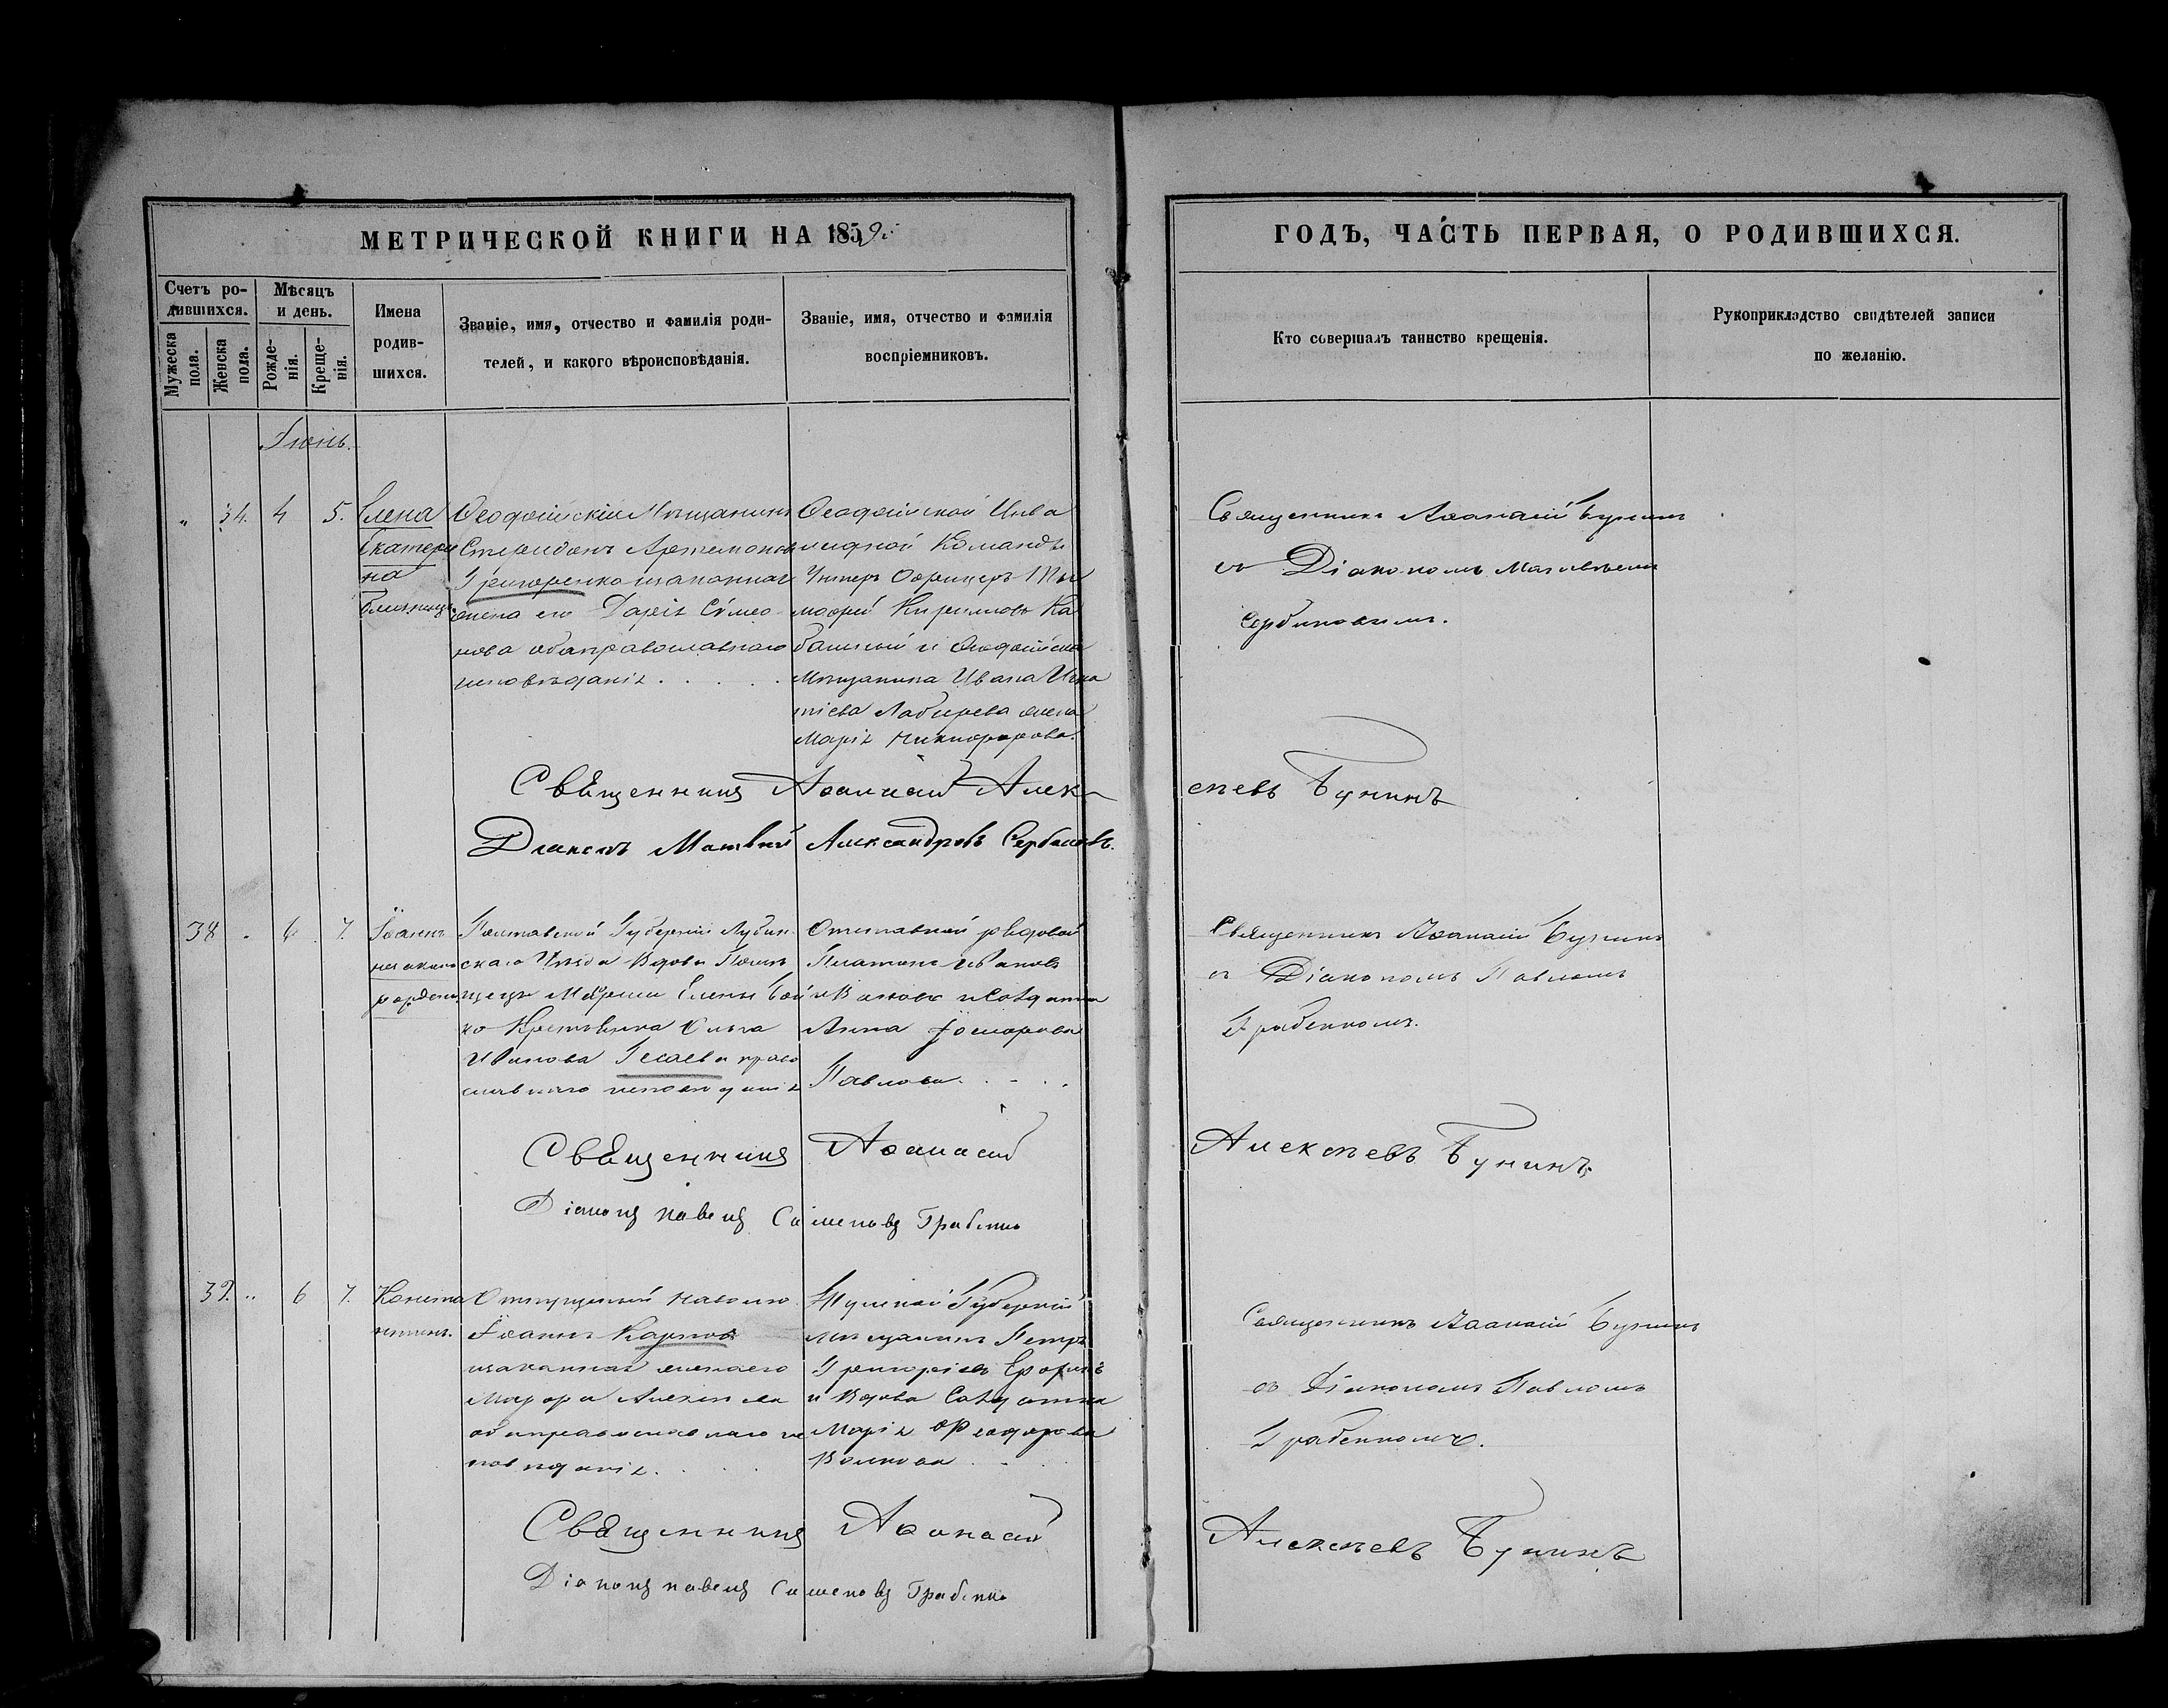 МЕТРИЧЕСКОЙ КНИГИ НА 1859.
ГОДЪ, ЧАСТЬ ПЕРВАЯ, О РОДИВШИХСЯ.
Счетъ ро-
дившихся.
Мужеска
пола.
Женска
пола.
Мѣсяцъ
и день.
Рожде-
нія.
Креще-
нія.
Имена
родив-
шихся.
Званіе, имя, отчество и фамилія роди-
телей, и какого вѣроисповѣданія.
Званіе, имя, отчество и фамилія
воспріемниковъ.
Кто совершалъ таинство крещенія.
Рукоприкладство свидѣтелей записи
по желанію.
Іюнь.
„ 34. 4 5.
Елена
Екатери
на
близнецы
Ѳеодосійскій Мѣщанинъ
Спиридонъ Артемоновъ
Григоренко изаконная
жена его Дарія Симео
нова оба православнаго
исповѣданія . . . . .
Ѳеодосійской Инва
лидной Команды
Унтеръ Офицеръ
Кириловъ Ка
и Ѳеодосійска
Мѣщанина Ивана Игна
тіева жена
Марія Никифорова.
Священникъ Аѳанасій Бунинъ
съ Діакономъ Матвѣемъ
Сербиновымъ.
Священникъ Аѳанасій Алек
сѣевъ Бунинъ
Діаконъ Матвѣй Александровъ Сербиновъ.
38 „ 6 7.
Іоаннъ
незаконо
рожден
Полтавской Губерніи Лубен
скаго Уѣзда Вдовы Помѣ
щицы Маріи Елены
ко Крестьянка Ольга
Иванова право
славнаго исповѣданія
Отставной рядовой
Платонъ Ивановъ
и Солдатка
Анна
Павлова . . .
Священникъ Аѳанасій Бунинъ
съ Діакономъ Павломъ
Грабенкомъ.
Священникъ Аѳанасій
Алексѣевъ Бунинъ
Діаконъ Павелъ Сименовъ Грабенко
39. „ 6 7.
Конста
нтинъ.
Отпущенный наволю
Іоаннъ Карповъ
изаконная женаего
Алексѣева
оба православнаго ис
повѣданія . . .
Тульской Губерніи
Мѣщанинъ Петръ
Григоріевъ
и Вдова Солдатка
Марія Феодорова
Волкова . . .
Священникъ Аѳанасій Бунинъ
съ Діакономъ Павломъ
Грабенкомъ.
Священникъ Аѳанасій
Алексѣевъ Бунинъ
Діаконъ Павелъ Сименовъ Грабенко